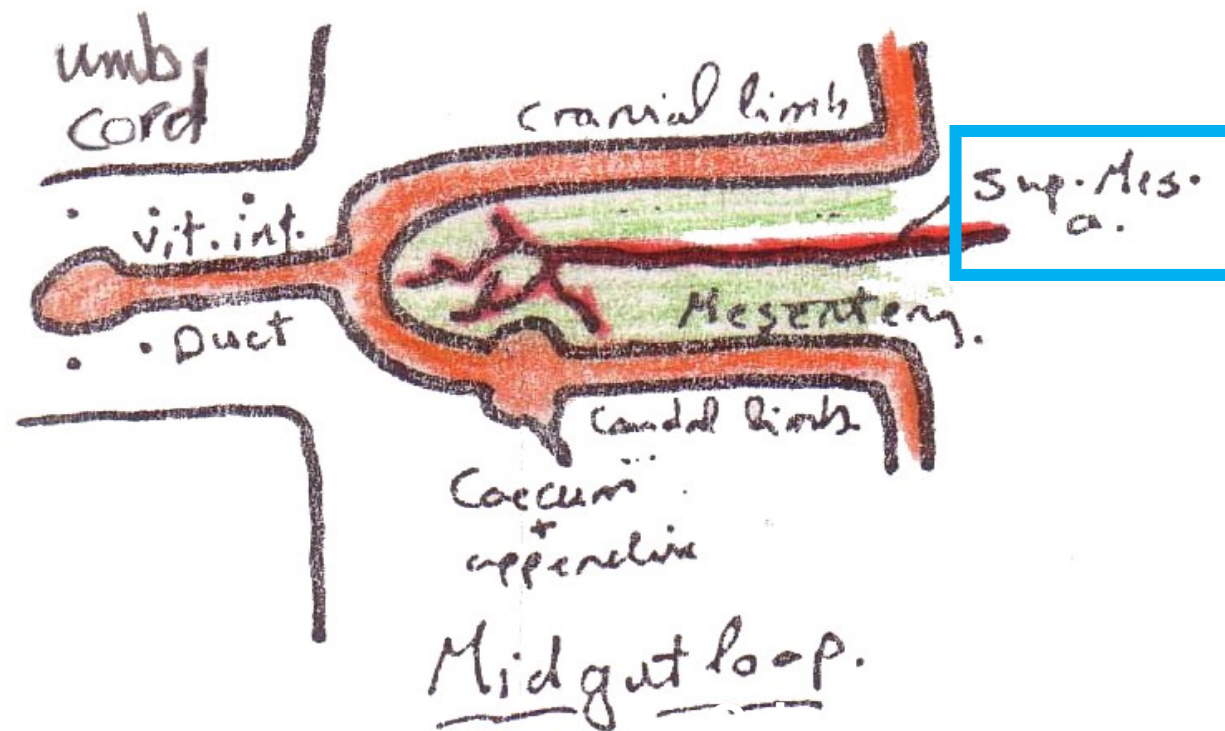 umb.
cord
cranial limb
Sup. Mes.
a.
vit. int.
Duct
Mesentery.
caudal limb
Caecum
+
appendix
Midgut loop.